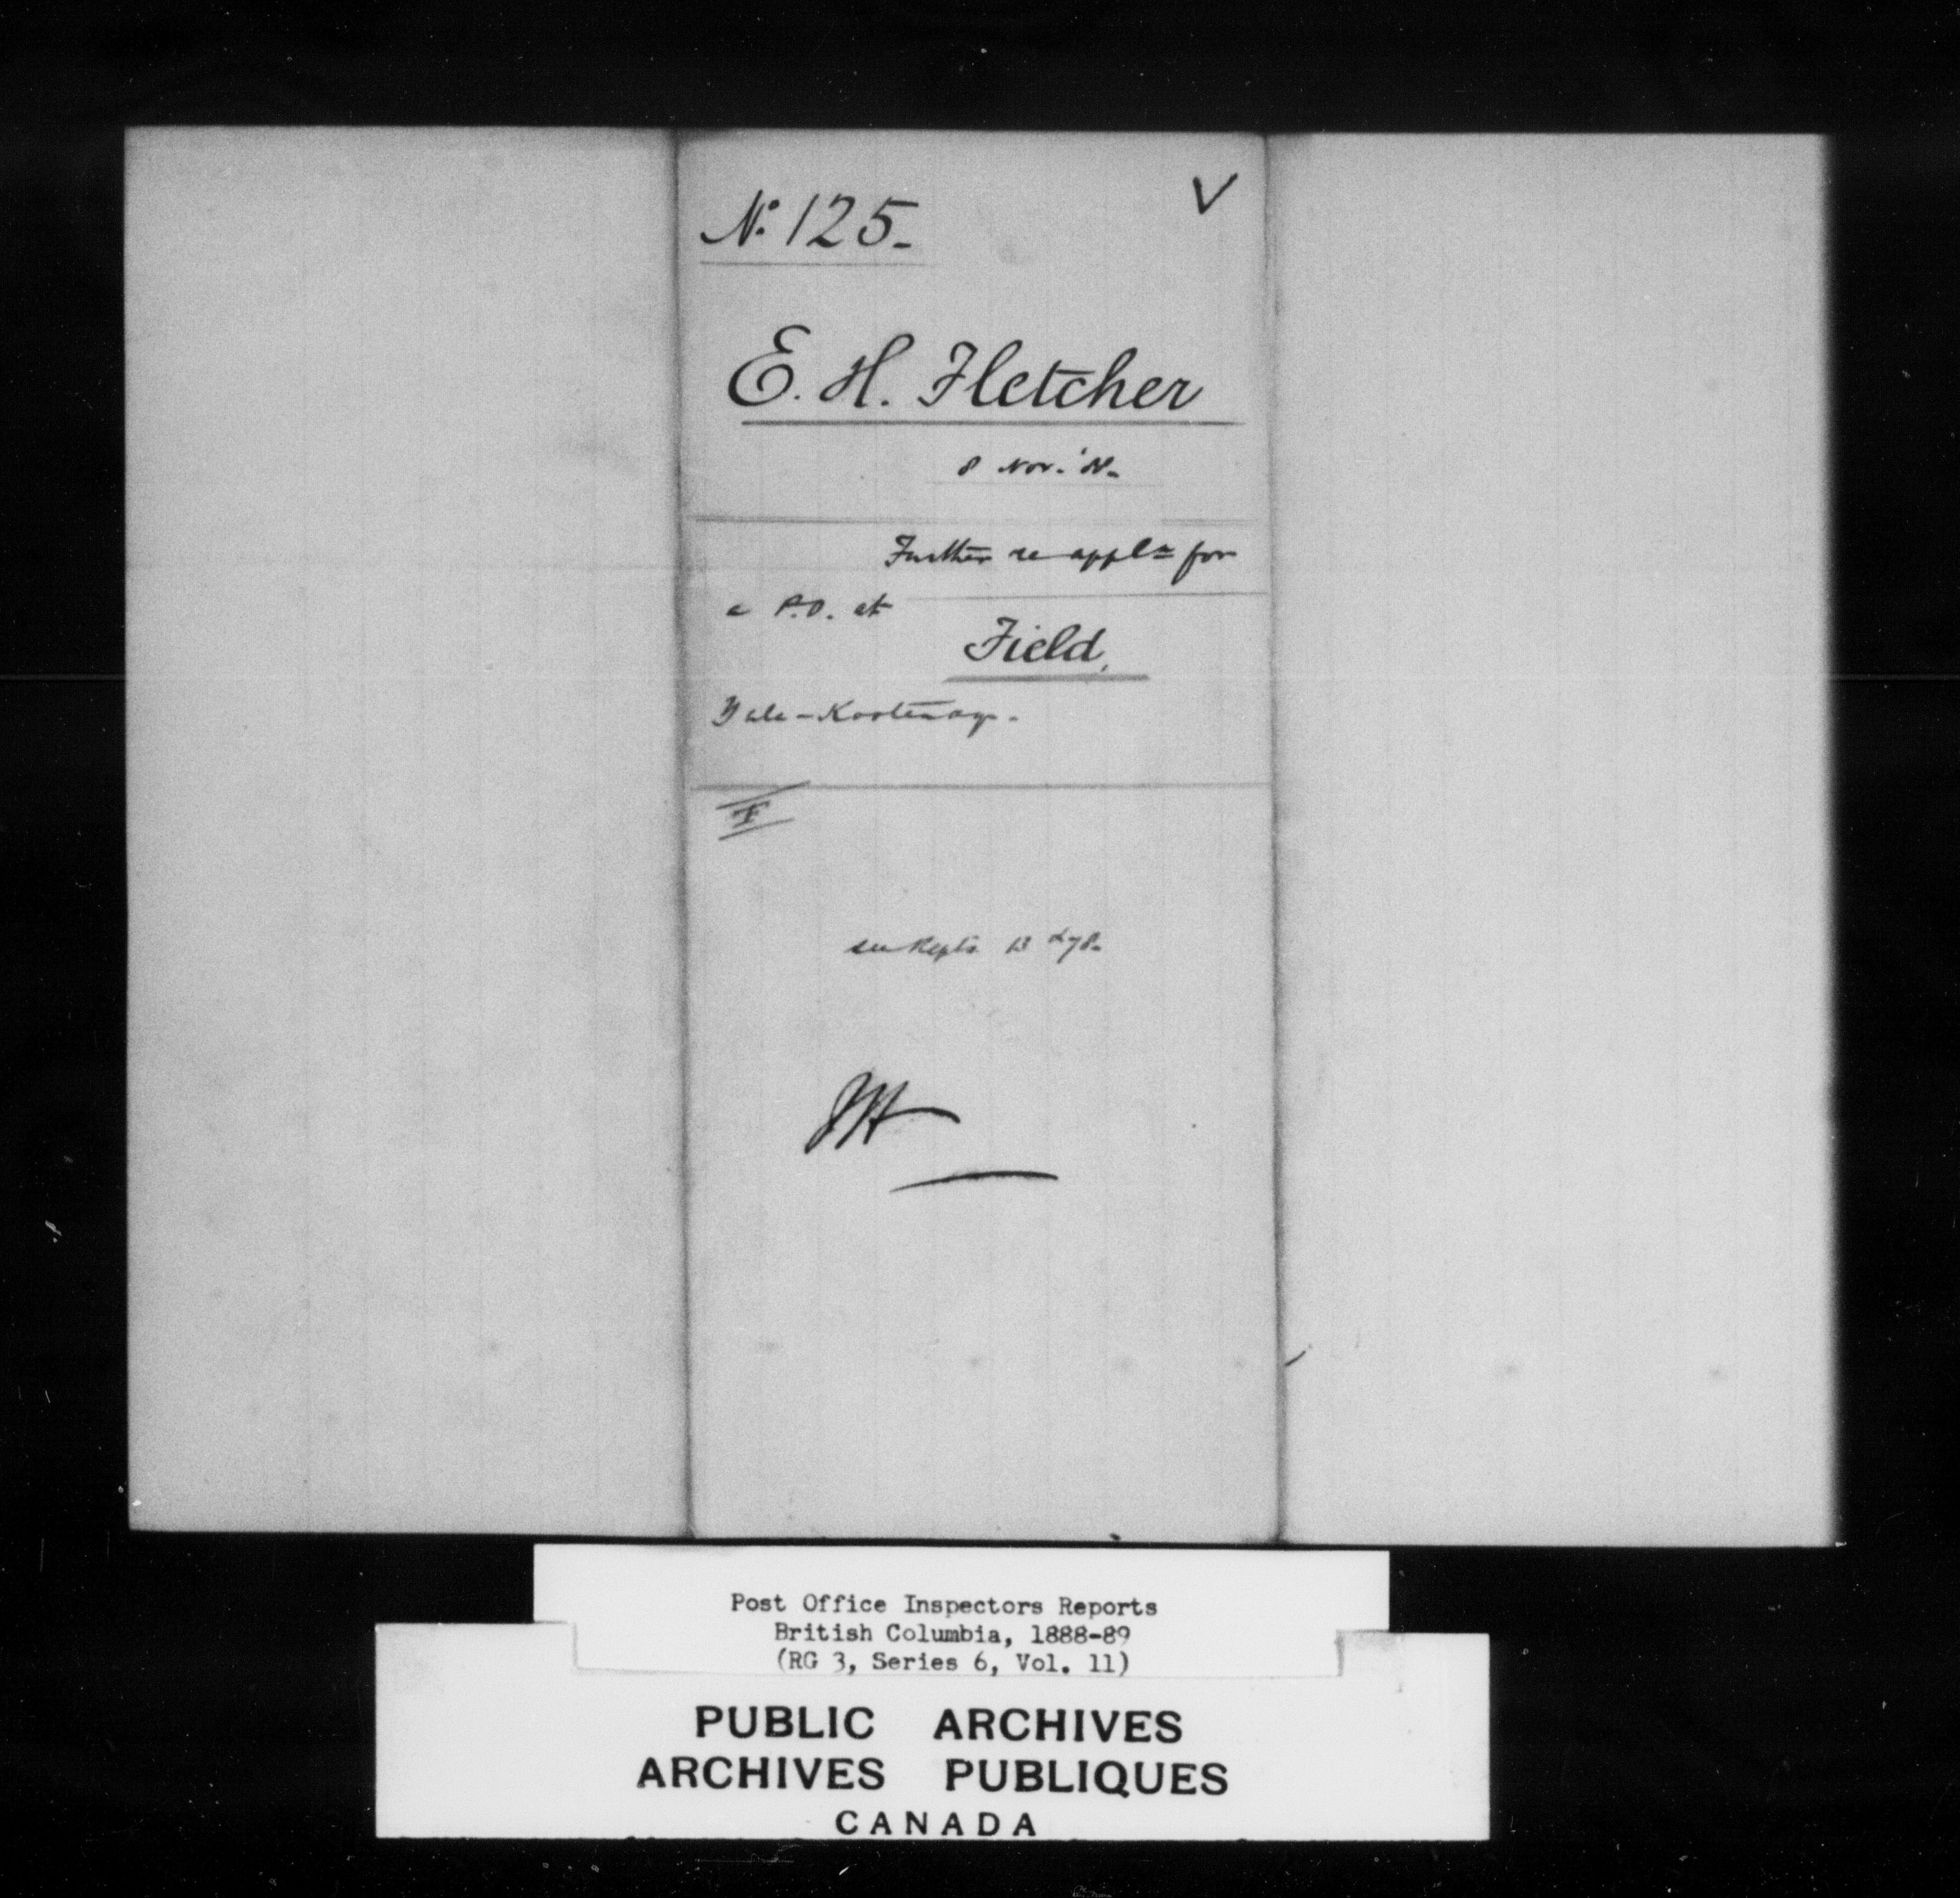 Nº 125.
V
E. H. Fletcher
8 Nov. '88.
Further re appln for
a P.O. at
Field,
Yale-Kootenay.
F
see Repts 13 & 78.
Post Office Inspectors Reports
British Columbia, 1888-89
(RG 3, Series 6, Vol. 11)
PUBLIC ARCHIVES
ARCHIVES PUBLIQUES
CANADA